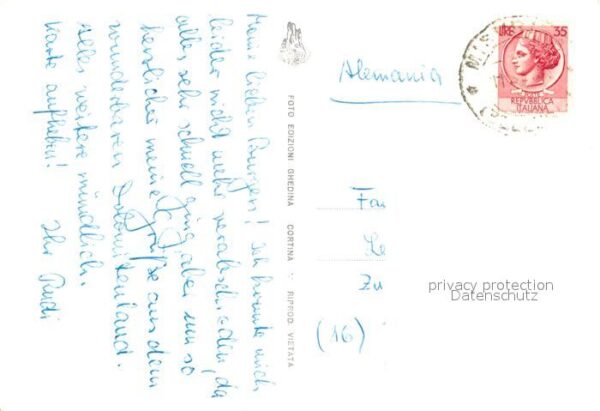 Meine lieben Burgers! Ich konnte mich
leider nicht mehr verabschieden, da
alles sehr schnell ging, aber um so
herzlicher meine Grüße aus dem
wunderbaren Dolomitenland.
Alles weitere mündlich.
Karte aufheben! Ihr Rudi
FOTO EDIZIONI GHEDINA CORTINA RIPROD. VIETATA
Alemania
LIRE 35
REPVBBLICA
ITALIANA
Fa
Le
Zu
(16)
privacy protection
Datenschutz